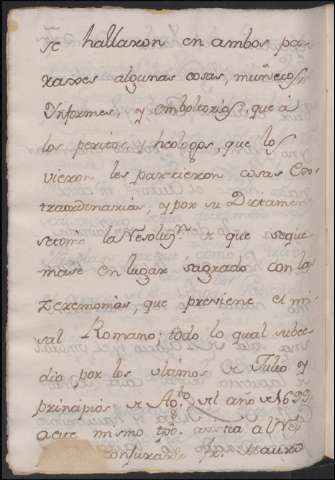 se hallaron en ambos pa-
raxes algunas cosas, muñecos
Informes, y emboltorios, que à
los peritos, y theologos, que los
vieron les parecieron cosas Ex-
traordinarias, y por su Dictamen
se tomò la Resoluz.ⁿ de que se que
mase en lugar sagrado con las
Zeremonias, que previene el mi-
sal Romano; todo lo qual subce-
dio por los ultimos de Julio y
principios de Ag.to del año de 1699,
a este mismo tpo. asistia al Rey
conjurando fr. Mauro